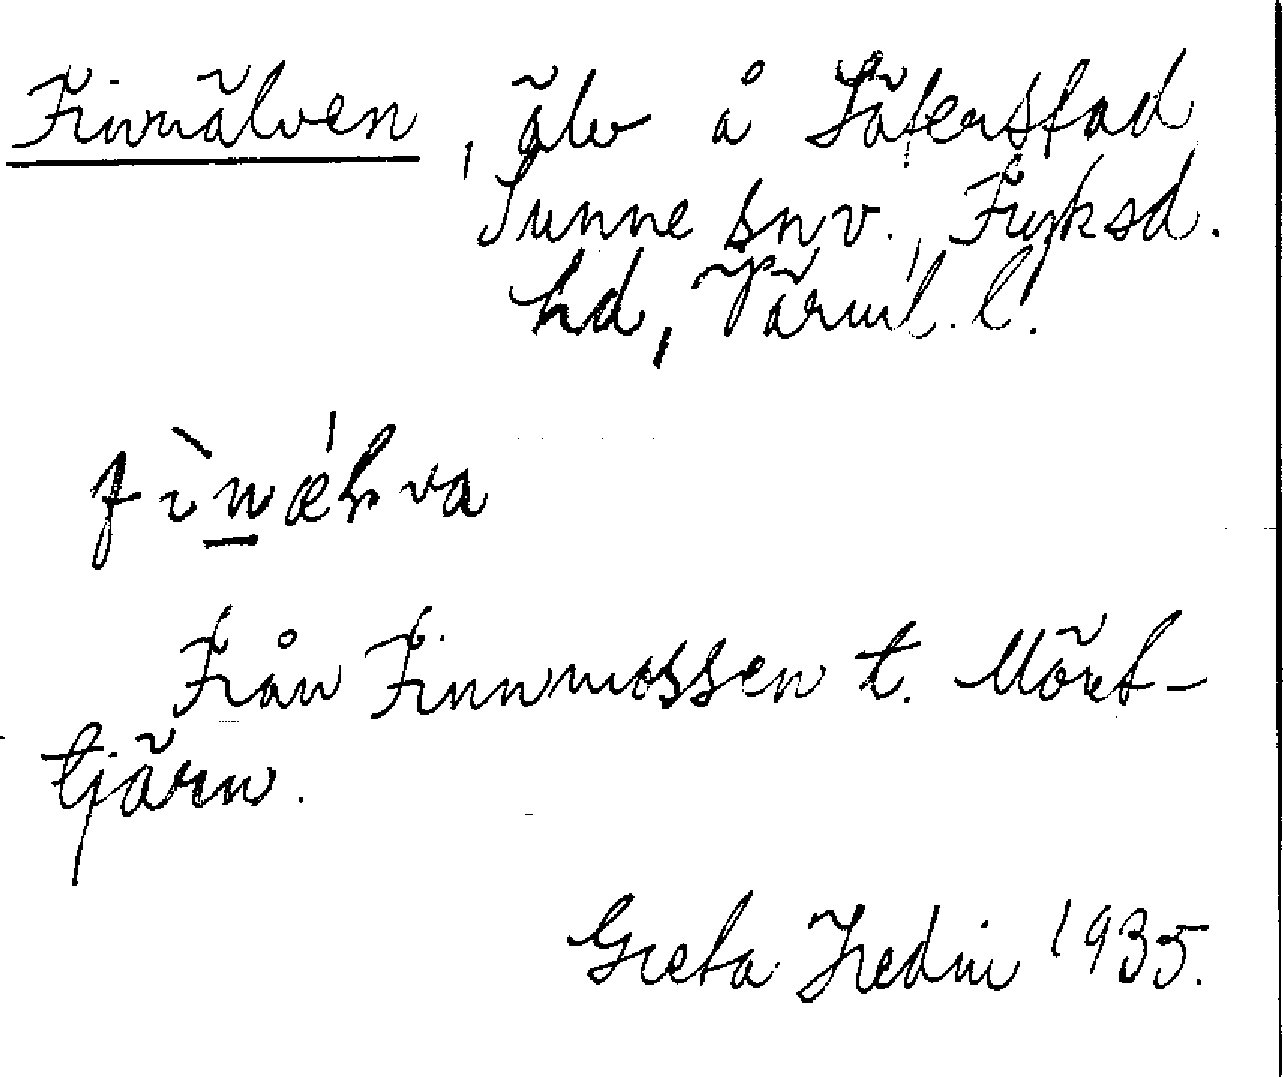 Finnälven, älv å Säterstad
Sunne snv., Fryksd.
hd, Värml. l.
Från Finnmossen t. Mört-
tjärn.
Greta Hedin 1935.